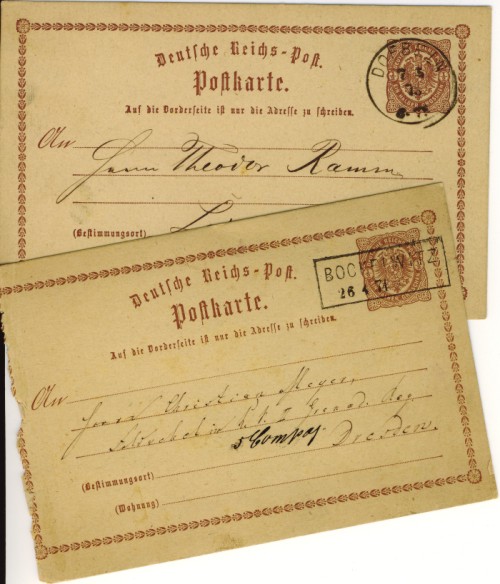 Deutsche Reichs-Post.
Postkarte.
Auf die Vorderseite ist nur die Adresse zu schreiben.
DOEBELN
7 5
An Herrn Theodor Ramm
(Bestimmungsort)
Deutsche Reichs-Post.
Postkarte.
BOCKELWITZ
26 4 74
Auf die Vorderseite ist nur die Adresse zu schreiben.
An Herrn Christian Meyer,
Soldat Grenad. Reg
5 Compag Dresden.
(Bestimmungsort)
(Wohnung)